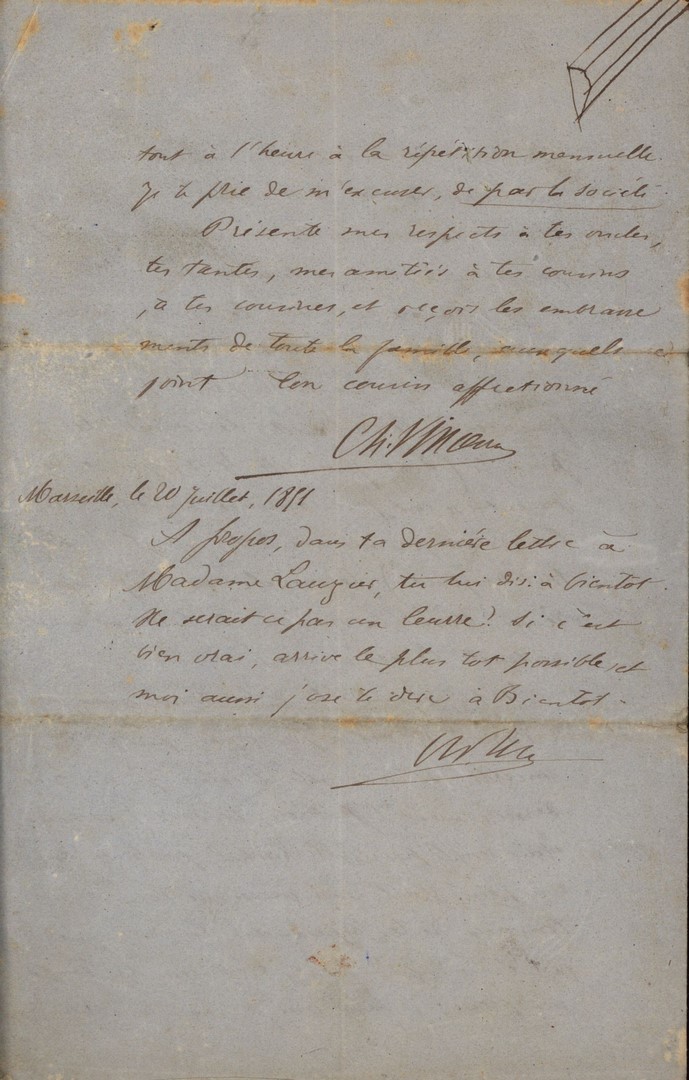 tout à l'heure à la répétition mensuelle.
Je te prie de m'excuser, de par la société.
Présente mes respects à tes oncles,
tes tantes, mes amitiés à tes cousins
, à tes cousines, et reçois les embrasse
ments de toute la famille, auxquels se
joint ton cousin affectionné
Ch.
Marseille, le 20 Juillet, 1851
A propos, dans ta dernière lettre à
Madame Laugier, tu lui dis: à bientot.
Ne serait ce pas un leurre? Si c'est
bien vrai, arrive le plus tot possible et
moi aussi j'ose te dire à Bientot.